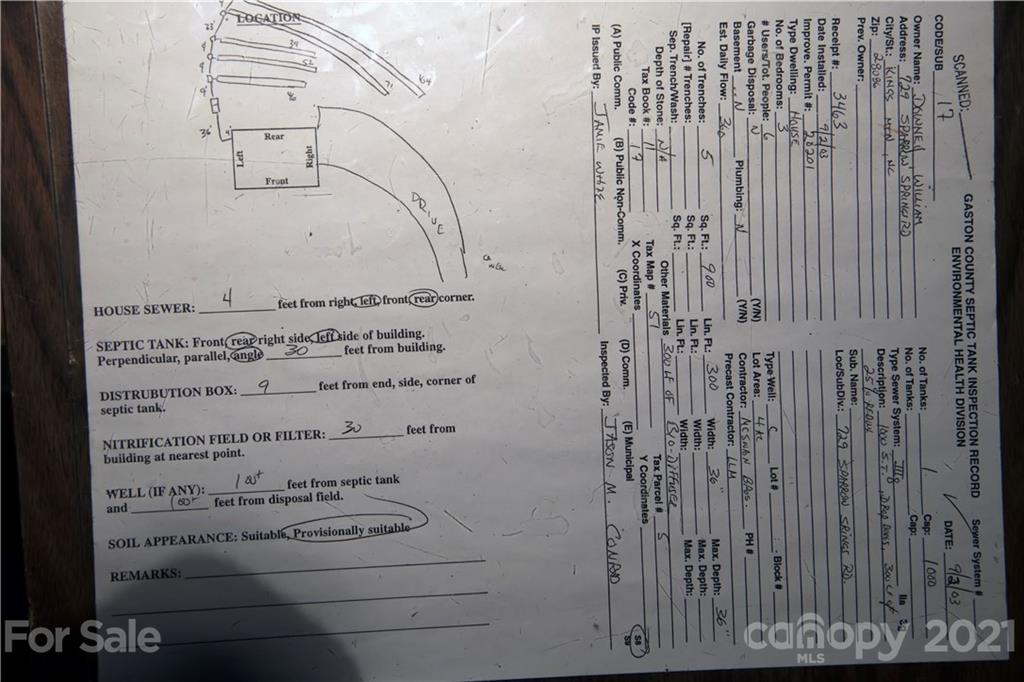 SCANNED:
GASTON COUNTY SEPTIC TANK INSPECTION RECORD
ENVIRONMENTAL HEALTH DIVISION
Sewer System #
CODE/SUB 17
DATE: 9/2/03
Owner Name: WILLIAM
Address: 729 SPARROW SPRINGS RD
City/St.: KINGS MTN, NC
Zip: 28086
Prev. Owner:
No. of Tanks: 1 Cap: 1000
No. of Tanks: Cap:
Type Sewer System: IIIB IIa
Description: 1000 S.T., D. Box 300 LF of
25% REDUU
Sub. Name:
Loc/SubDiv.: 729 SPARROW SPRINGS RD.
Receipt #: 3463
Date Installed: 9/2/03
Improve. Permit #: 28201
Type Dwelling: HOUSE
No. of Bedrooms: 3
# Users/Tot. People: 6
Garbage Disposal: N (Y/N)
Basement N Plumbing: N (Y/N)
Est. Daily Flow: 360
Type Well: C Lot # Block #
Lot Area: 4 Ac
Contractor: McSWAIN BROS. PH #
Precast Contractor: LLM
No. of Trenches: 5 Sq. Ft.: 900 Lin. Ft.: 300 Width: 36" Max. Depth: 36"
[Repair] # Trenches: Sq. Ft.: Lin. Ft.: Width: Max. Depth:
Sep. Trench/Wash: Sq. Ft.: Lin. Ft.: Width: Max. Depth:
Depth of Stone: N/A Other Materials 300 LF OF
Tax Book #: 11 Tax Map # 51 Tax Parcel # 5
Code #: 17 X Coordinates Y Coordinates
(A) Public Comm. (B) Public Non-Comm. (C) Priv. (D) Comm. (E) Municipal S8 S9
IP Issued By: JAMIE WHITE Inspected By: JASON M. CONRAD
LOCATION
Rear
Left
Right
Front
DRIVE
HOUSE SEWER: 4 feet from right, left, front, rear corner.
SEPTIC TANK: Front, rear, right side, left side of building.
Perpendicular, parallel, angle 30 feet from building.
DISTRUBUTION BOX: 9 feet from end, side, corner of
septic tank.
NITRIFICATION FIELD OR FILTER: 30 feet from
building at nearest point.
WELL (IF ANY): 100+ feet from septic tank
and 100+ feet from disposal field.
SOIL APPEARANCE: Suitable, Provisionally suitable
REMARKS:
For Sale
canopy MLS 2021